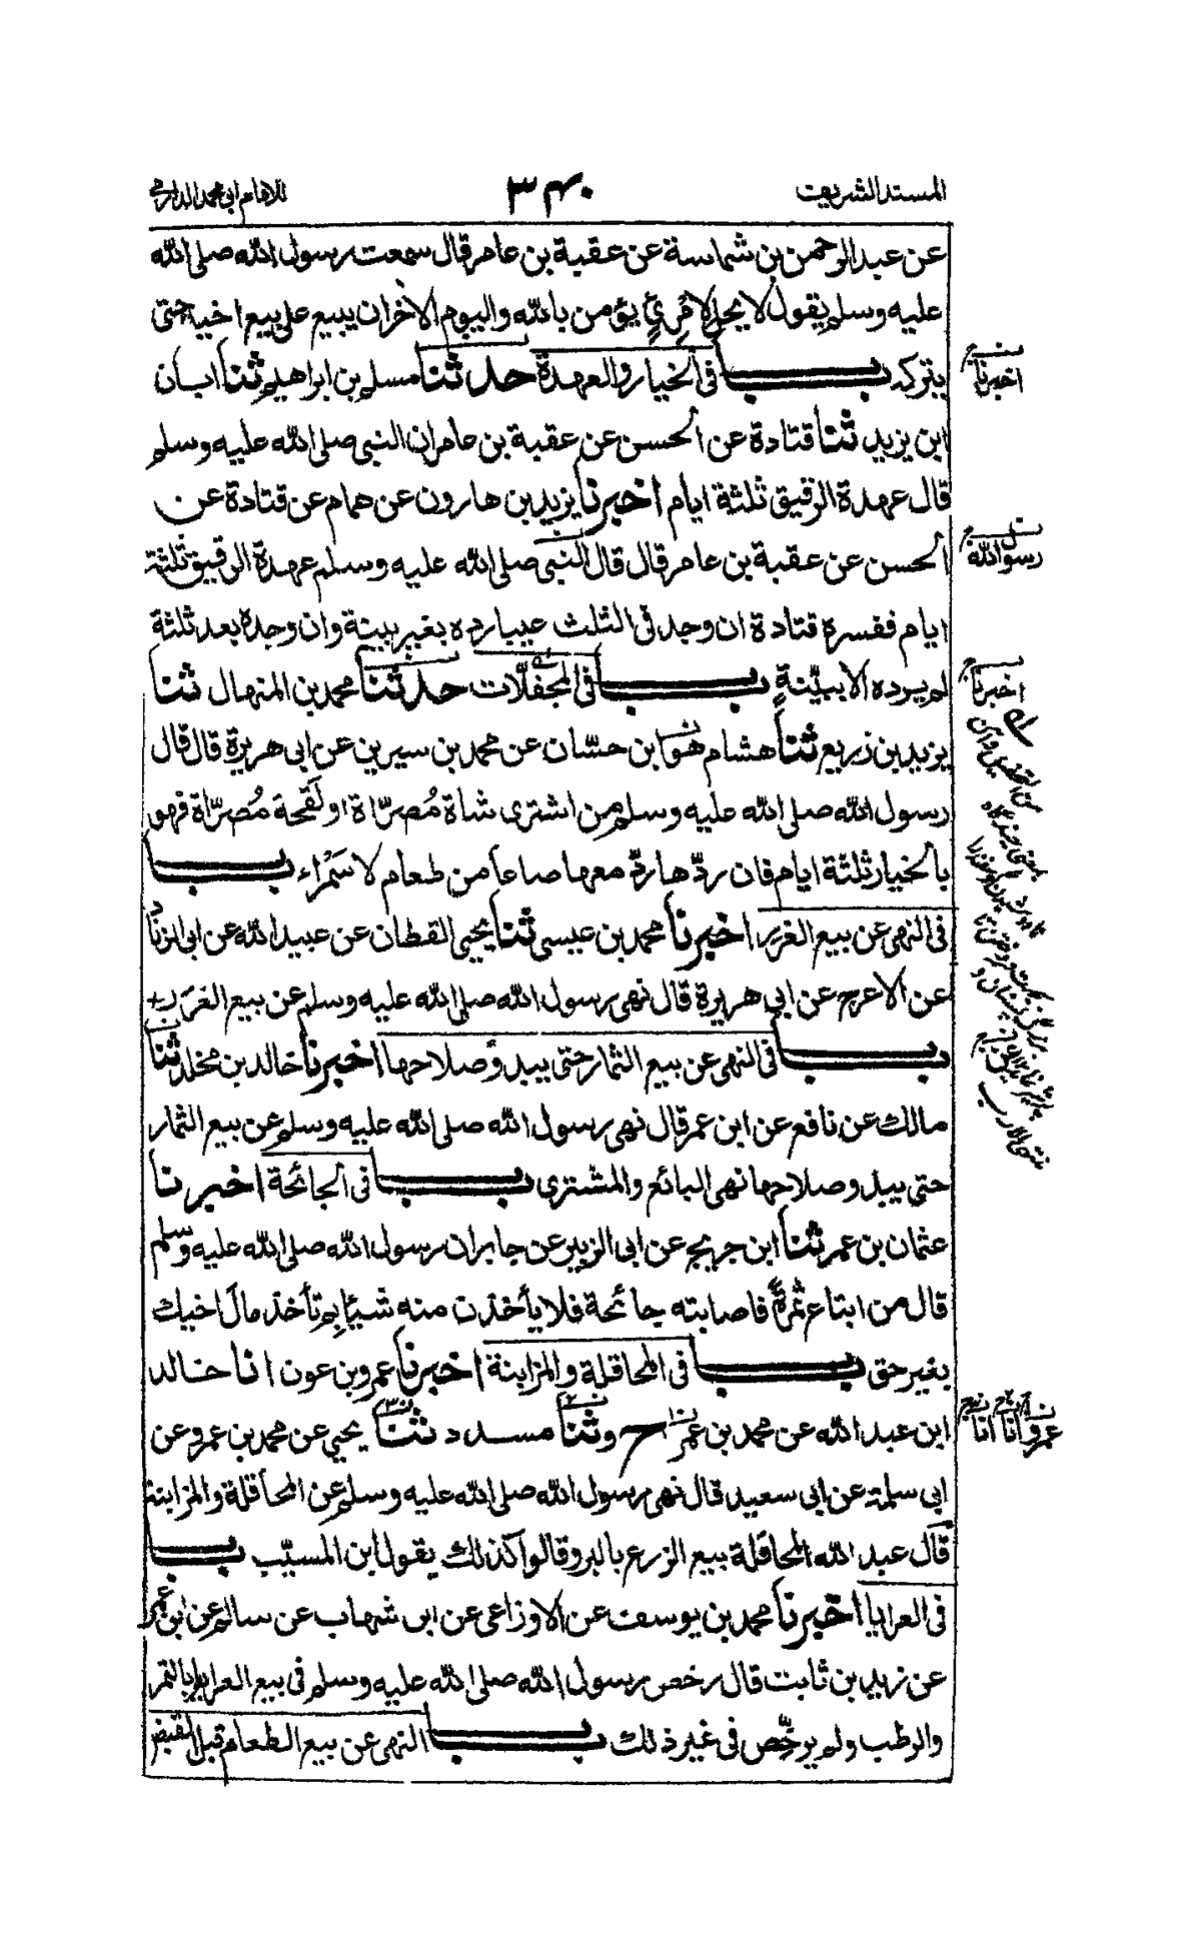 المسند الشريف ٣٤٠ للامام ابي محمد الدارمي
عن عبد الرحمن بن شماسة عن عقبة بن عامر قال سمعت رسول الله صلى الله
عليه وسلم يقول لا يحل لامْرِئٍ يؤمن بالله واليوم الاٰخر ان يبيع على بيع اخيه حتى
يتركه بــــاب فى الخيار والعهدة حدثنا مسلم بن ابراهيم ثنا ابان
ابن يزيد ثنا قتادة عن الحسن عن عقبة بن عامر ان النبى صلى الله عليه وسلم
قال عهدة الرقيق ثلثة ايام اخبرنا يزيد بن هارون عن همام عن قتادة عن
الحسن عن عقبة بن عامر قال قال النبى صلى الله عليه وسلم عهدة الرقيق ثلثة
ايام ففسره قتادة ان وجد فى الثلث عيبا رده بغير بينة وان وجده بعد ثلثة
لم يرده الا ببيّنةٍ بــــاب فى المحفّلات حدثنا محمد بن المنهال ثنا
يزيد بن زريع ثنا هشام هو ابن حسّان عن محمد بن سيرين عن ابى هريرة قال قال
رسول الله صلى الله عليه وسلم من اشترى شاة مُصرّاة او لَقحة مُصرّاة فهو
بالخيار ثلثة ايام فان ردّها ردّ معها صاعاً من طعام لا سَمْراء بــــاب
فى النهى عن بيع الغرر اخبرنا محمد بن عيسى ثنا يحيى القطان عن عبيد الله عن ابى الزناد
عن الاعرج عن ابى هريرة قال نهى رسول الله صلى الله عليه وسلم عن بيع الغرر
بــــاب فى النهى عن بيع الثمار حتى يبدو صلاحها اخبرنا خالد بن مخلد ثنا
مالك عن نافع عن ابن عمر قال نهى رسول الله صلى الله عليه وسلم عن بيع الثمار
حتى يبدو صلاحها نهى البائع والمشترى بــــاب فى الجائحة اخبرنا
عثمان بن عمر ثنا ابن جريج عن ابى الزبير عن جابر ان رسول الله صلى الله عليه وسلم
قال من ابتاع ثمرةً فاصابته جائحة فلا يأخذن منه شيئا بم تأخذ مال اخيك
بغير حق بــــاب فى المحاقلة والمزابنة اخبرنا عمرو بن عون انا خالد
ابن عبد الله عن محمد بن عمر ح وثنا مسدد ثنا يحيى عن محمد بن عمرو عن
ابى سلمة عن ابى سعيد قال نهى رسول الله صلى الله عليه وسلم عن المحاقلة والمزابنة
قال عبد الله المحاقلة بيع الزرع بالبر وقالوا كذلك يقول ابن المسيّب بــــاب
فى العرايا اخبرنا محمد بن يوسف عن الاوزاعى عن ابن شهاب عن سالم عن ابن عمر
عن زيد بن ثابت قال رخص رسول الله صلى الله عليه وسلم فى بيع العرايا بالتمر
والرطب ولم يرخّص فى غير ذلك بــــاب النهى عن بيع الطعام قبل القبض
اخبرنا
رسول الله
اخبرنا
عمرو انا انا